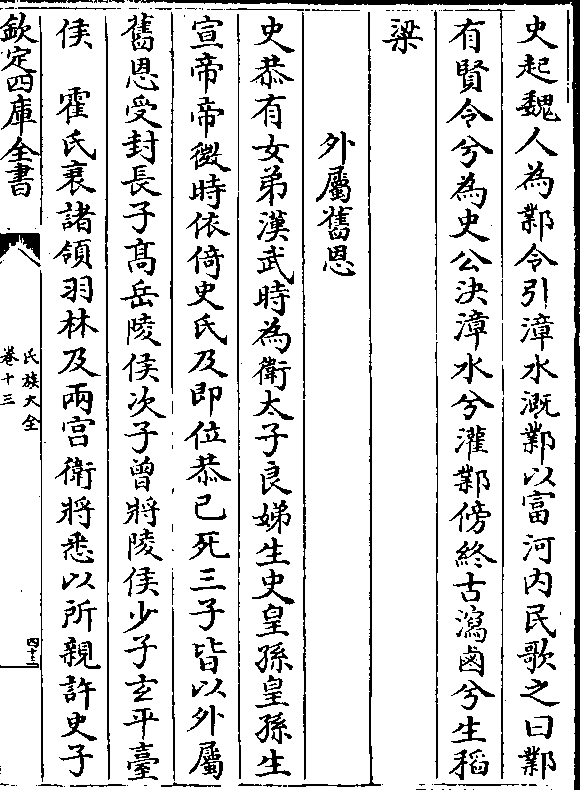 史起魏人為鄴令引漳水溉鄴以富河内民歌之曰鄴
有賢令兮為史公决漳水兮灌鄴傍終古瀉鹵兮生稻
梁
外屬舊恩
史恭有女弟漢武時為衛太子良娣生史皇孫皇孫生
宣帝帝微時依倚史氏及即位恭已死三子皆以外屬
舊恩受封長子髙岳陵侯次子曾將陵侯少子玄平臺
侯　霍氏衰諸領羽林及兩宫衛將悉以所親許史子
欽定四庫全書
氏族大全
卷十三
四十三